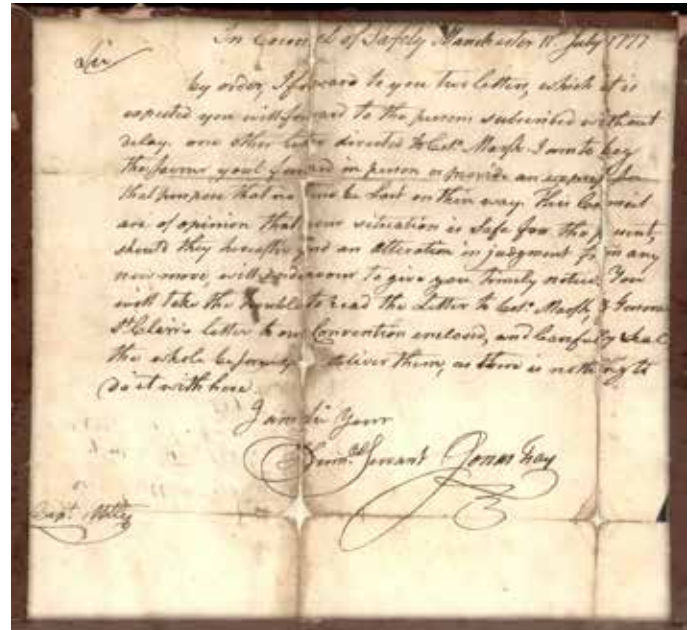 In Council of Safety Manchester 11th July 1777
Sir
by order, I forward to you two letters, which it is
expected you will forward to the persons subscribed without
delay. one other letter directed to Colo. Marsh I am to beg
the favour youl forward in person or provide an express for
that purpose that no time be lost on their way. This Council
are of opinion that your situation is Safe for the present,
should they hereafter find an alteration in judgment from any
new move, will endeavour to give you Timely notice. You
will take the trouble to read the Letter to Colo. Marsh, & General
St. Clair's letter to our Convention enclosed, and Carefully Seal
the whole before you deliver them, as there is nothing to
do it with here.
I am Sir Your
Humbl Servant Jonas Fay
Capt.